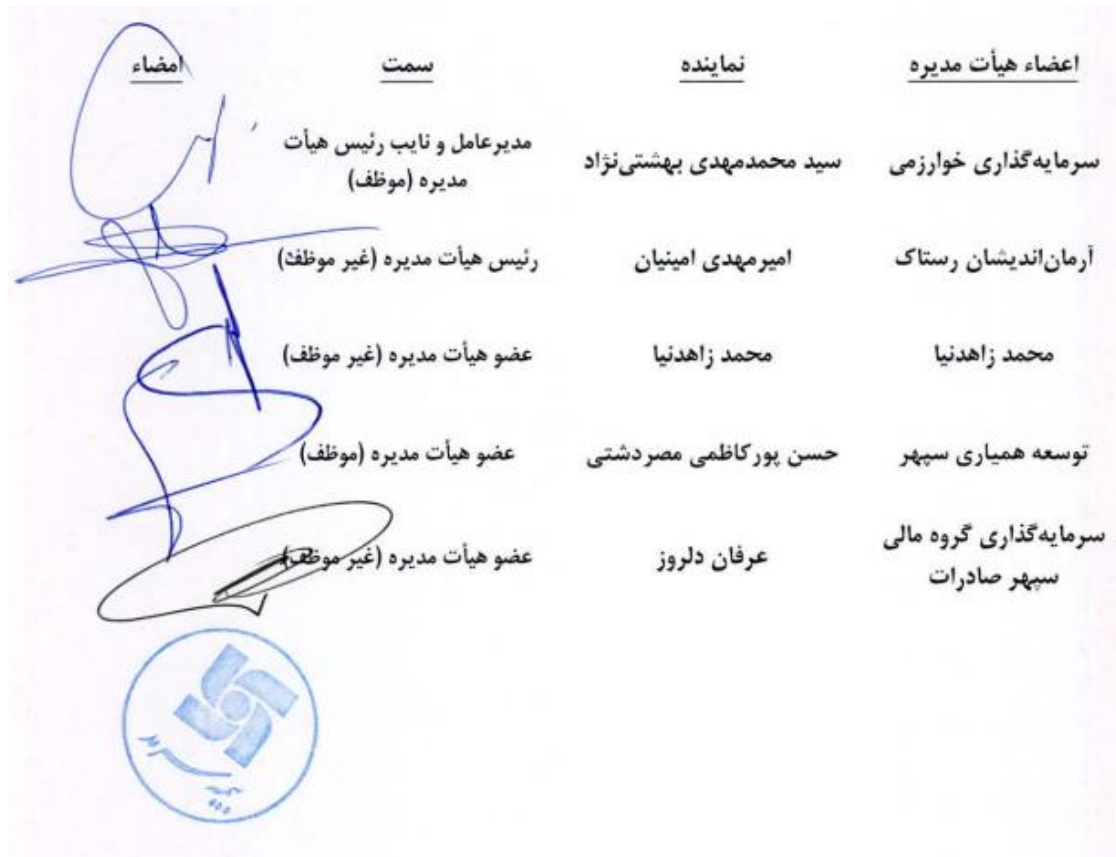 اعضاء هیأت مدیره نماینده سمت امضاء
سرمایه‌گذاری خوارزمی سید محمدمهدی بهشتی‌نژاد مدیرعامل و نایب رئیس هیأت
مدیره (موظف)
آرمان‌اندیشان رستاک امیرمهدی امینیان رئیس هیأت مدیره (غیر موظف)
محمد زاهدنیا محمد زاهدنیا عضو هیأت مدیره (غیر موظف)
توسعه همیاری سپهر حسن پورکاظمی مصردشتی عضو هیأت مدیره (موظف)
سرمایه‌گذاری گروه مالی
سپهر صادرات عرفان دلروز عضو هیأت مدیره (غیر موظف)
بیمه سرمد